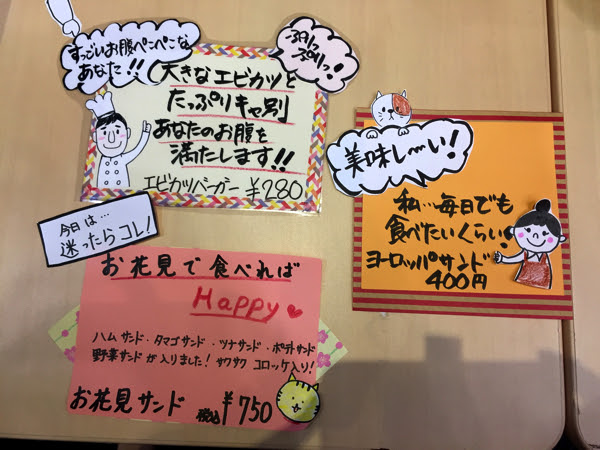 すっごいお腹ぺこぺこな
あなた!!
大きなエビカツと
たっぷりキャ別
あなたのお腹を
満たします!!
エビカツバーガー ¥280
ぷりっ!
美味し〜い!
私…毎日でも
食べたいくらい!
ヨーロッパサンド
400円
今日は…
迷ったらコレ!
お花見で食べれば
Happy
ハムサンド・タマゴサンド・ツナサンド・ポテトサンド
野菜サンドが入りました! サクサク コロッケ入り!
お花見サンド 税込 ¥750